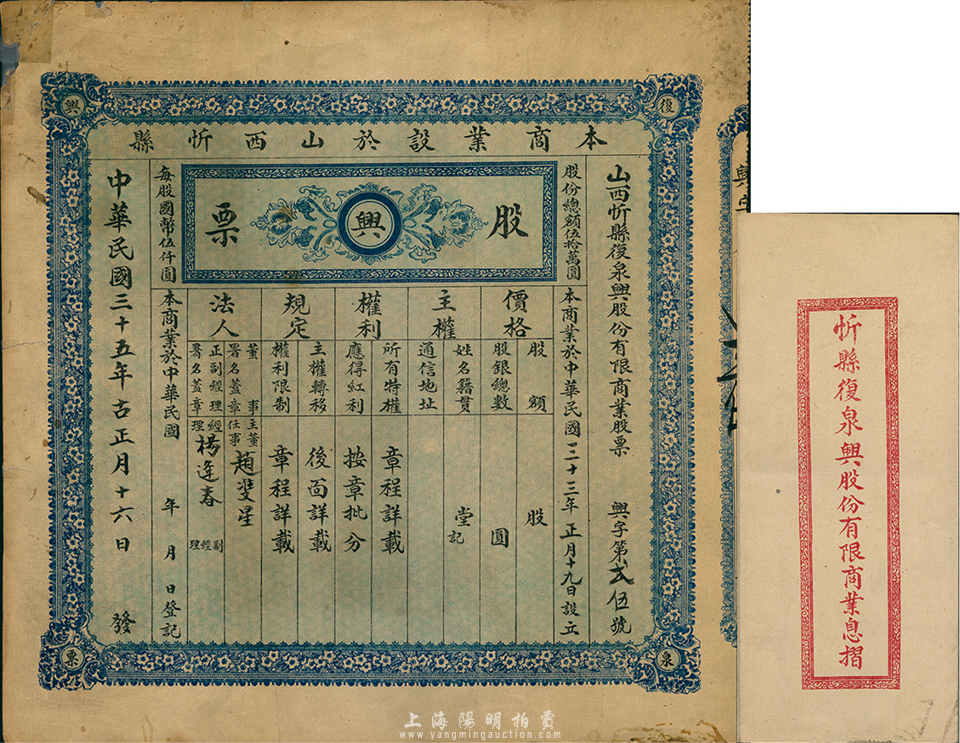 復
興
泉
票
本商業設於山西忻縣
山西忻縣復泉興股份有限商業股票
興字第貳伍號
股份總額伍拾萬圓
本商業於中華民國三十三年正月十九日設立
股
興
票
每股國幣伍仟圓
價格
股額
股
股銀總數
圓
主權
姓名籍貫
堂記
通信地址
權利
所有特權
章程詳載
應得紅利
按章批分
規定
主權轉移
後面詳載
權利限制
章程詳載
法人
董事署名蓋章
主董任事
趙雙星
正副經理署名蓋章
經理
楊逢春
副經理
本商業於中華民國 年 月 日登記
中華民國三十五年古正月十六日 發
忻縣復泉興股份有限商業息摺
上海陽明拍賣
www.yangmingauction.com